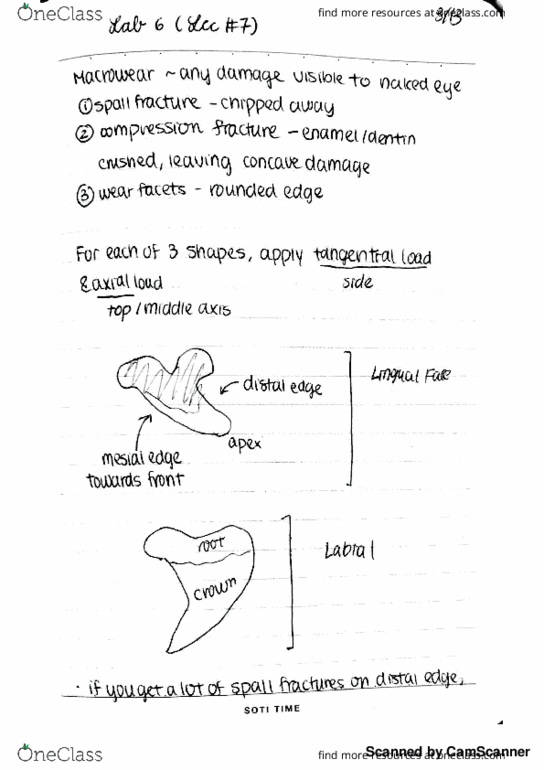 OneClass
find more resources at oneclass.com
Lab 6 (Lec #7)
3/13
Macrowear ~ any damage visible to naked eye
① spall fracture - chipped away
② compression fracture - enamel/dentin
crushed, leaving concave damage
③ wear facets - rounded edge
For each of 3 shapes, apply tangentral load
& axial load
side
top / middle axis
distal edge
Lingual Face
apex
mesial edge
towards front
root
Labial
crown
· if you get a lot of spall fractures on distal edge,
SOTI TIME
OneClass
find more resources at oneclass.com
Scanned by CamScanner